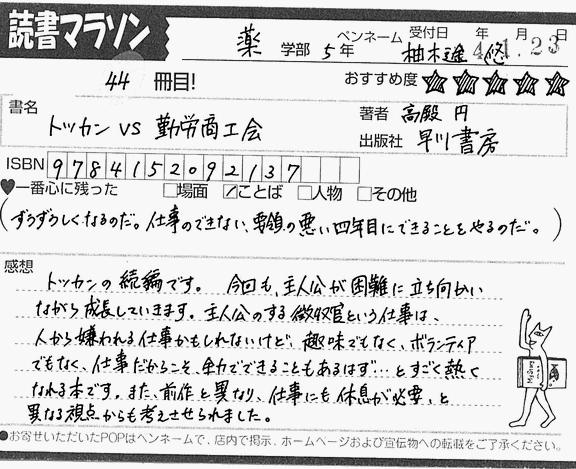 読書マラソン
薬 学部 5 年
ペンネーム 柚木 悠
受付日 年 月 日
4.1.23
44 冊目!
おすすめ度 ★★★★★
書名
トッカン VS 勤労商工会
著者 高殿 円
出版社 早川書房
ISBN 9784152092137
♥一番心に残った □場面 ☑ことば □人物 □その他
(ずうずうしくなるのだ。仕事のできない、要領の悪い四年目にできることをやるのだ。)
感想
トッカンの続編です。 今回も、主人公が困難に立ち向かい
ながら成長していきます。主人公のする徴収官という仕事は、
人から嫌われる仕事かもしれないけど、趣味でもなく、ボランティア
でもなく、仕事だからこそ、全力でできることもあるはず…とすごく熱く
なれる本です。また、前作と異なり、仕事にも休息が必要、と
異なる視点からも考えさせられました。
●お寄せいただいたPOPはペンネームで、店内で掲示、ホームページおよび宣伝物への転載をご了承ください。